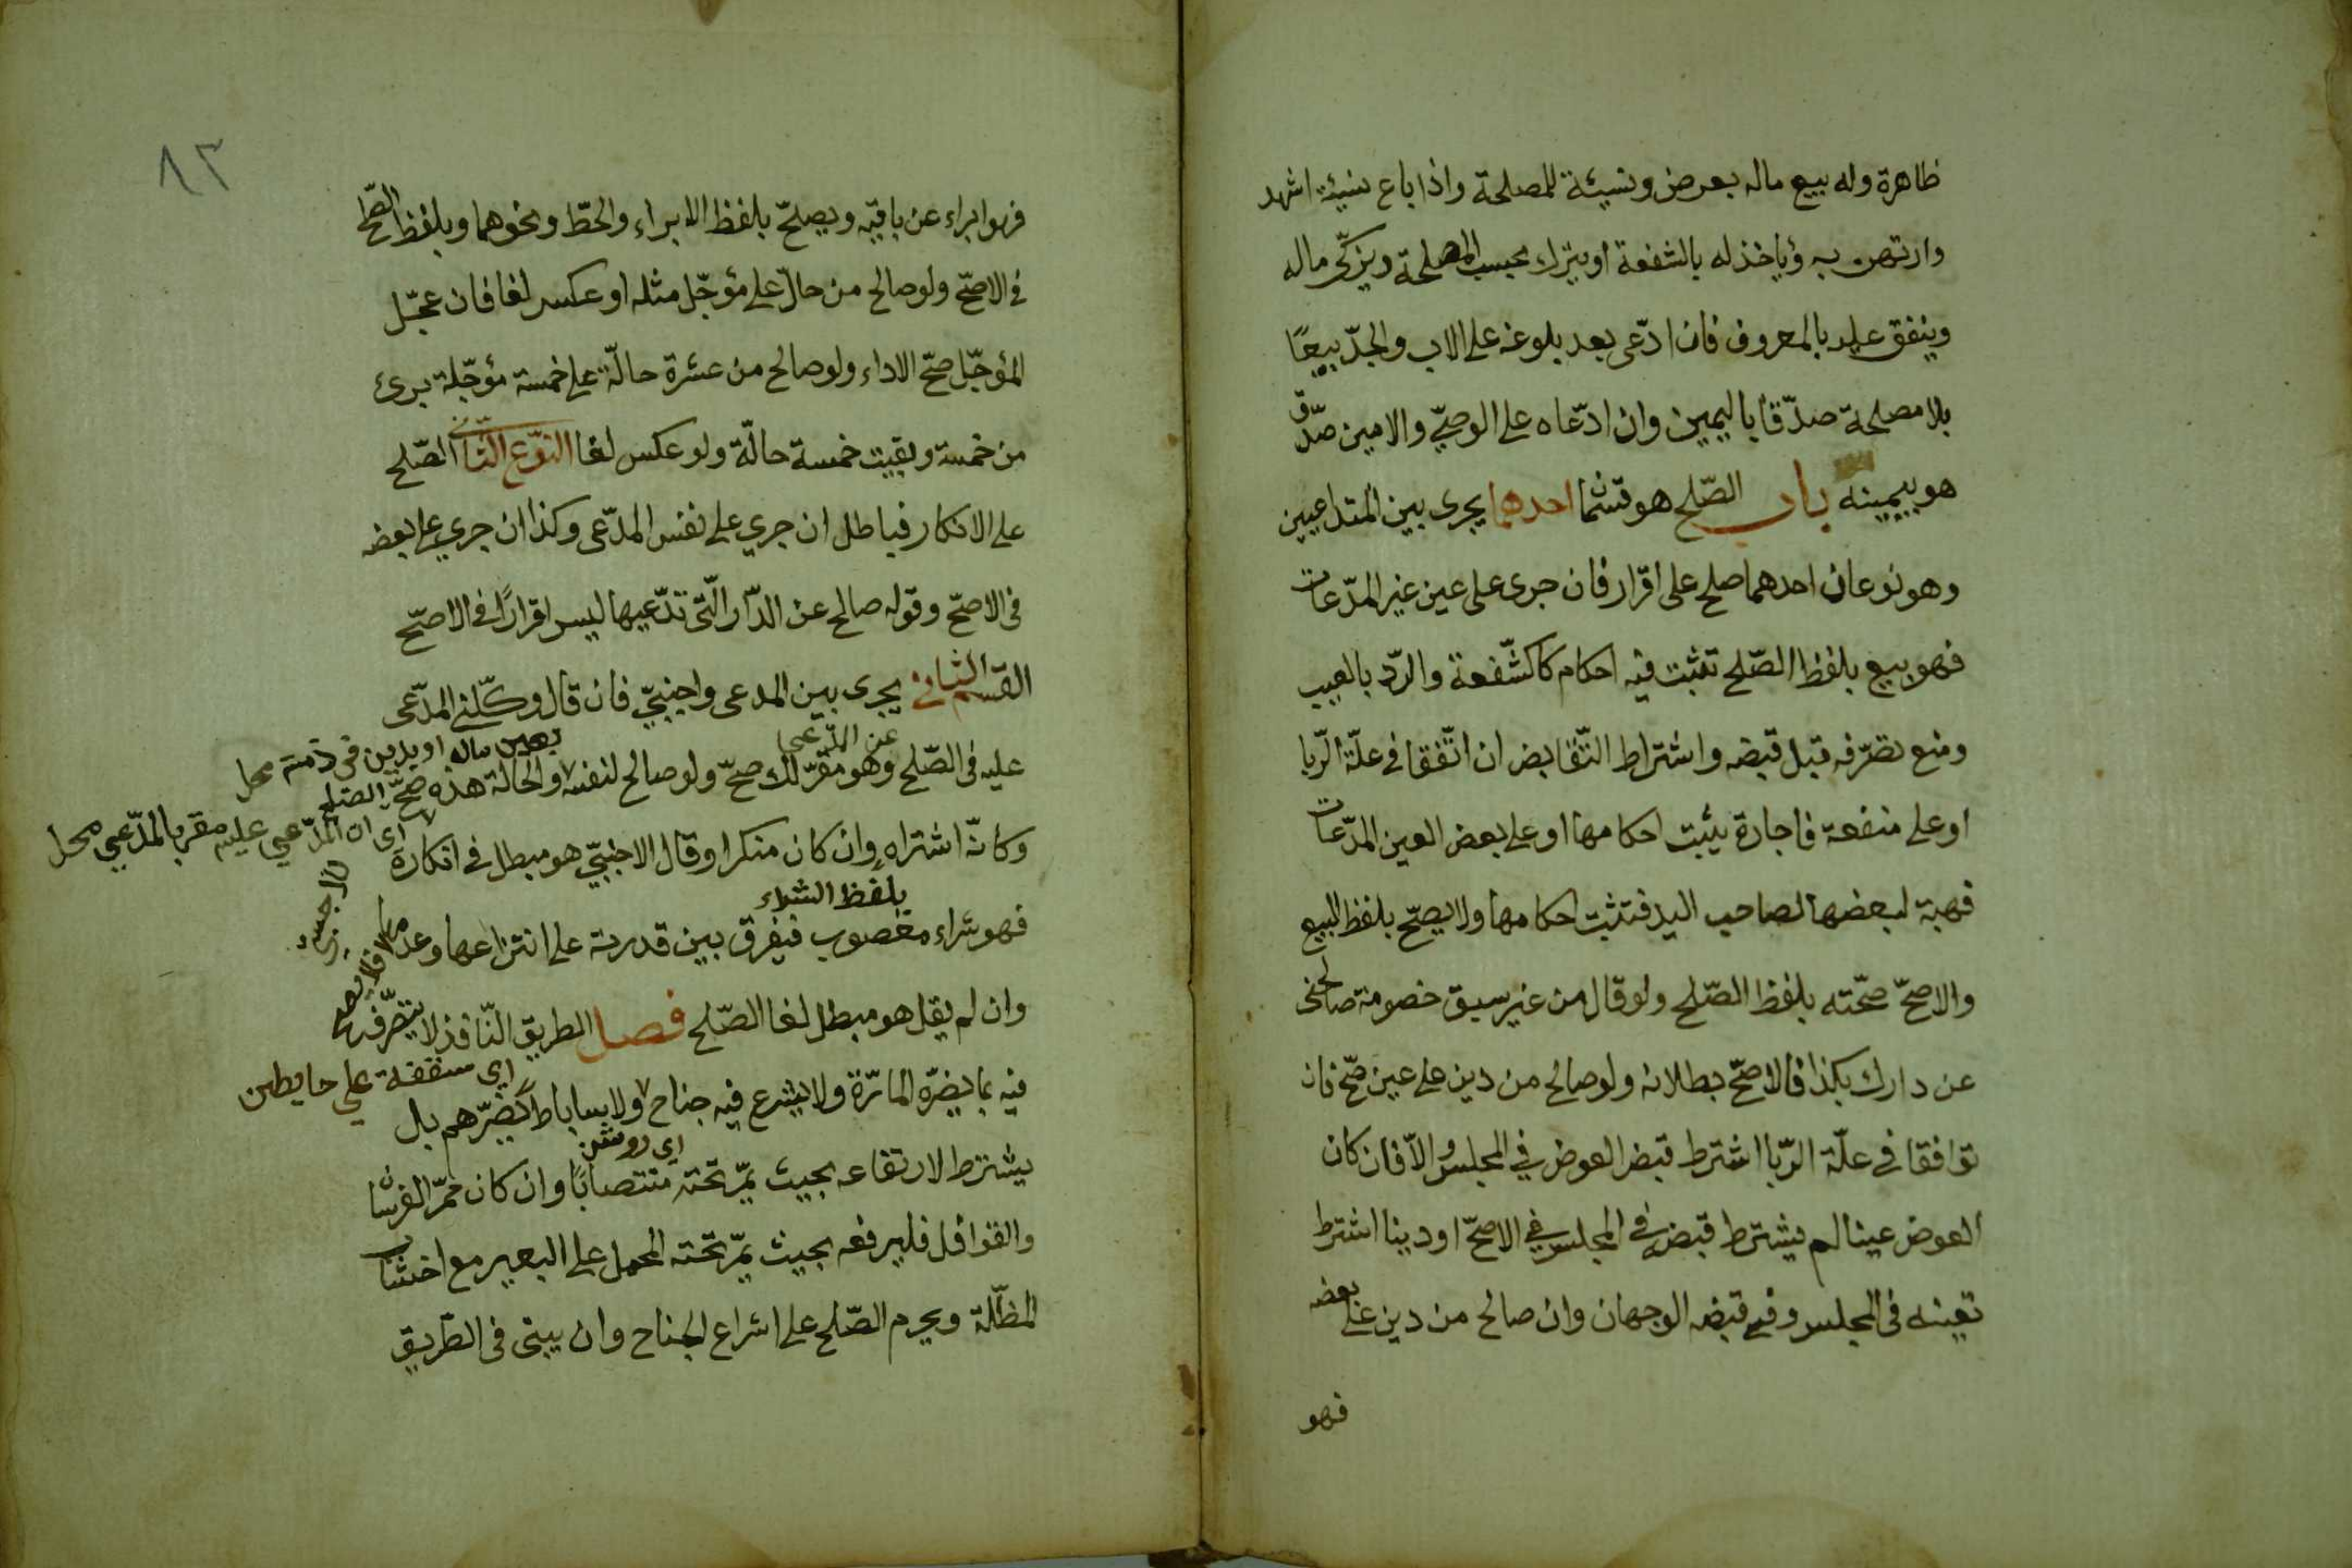 ظاهرة وله بيع ماله بعرض ونسيئة للمصلحة واذا باع نسيئة اشهد
وارتهن به ويأخذ له بالشفعة او يترك بحسب المصلحة ويزكّى ماله
وينفق عليه بالمعروف فان ادّعى بعد بلوغه على الاب والجدّ بيعًا
بلا مصلحة صدّقا باليمين وان ادّعاه على الوصيّ والامين صدّق
هو بيمينه باب الصّلح هو قسمان احدهما يجرى بين المتداعيين
وهو نوعان احدهما صلح على اقرار فان جرى على عين غير المدّعات
فهو بيع بلفظ الصّلح تثبت فيه احكام كالشّفعة والردّ بالعيب
ومنع تصرّفه قبل قبضه واشتراط التّقابض ان اتّفقا في علّة الرّبا
او على منفعة فاجارة يثبت احكامها او على بعض العين المدّعات
فهبة لبعضها لصاحب اليد فتثبت احكامها ولا يصحّ بلفظ البيع
والاصحّ صحّته بلفظ الصّلح ولو قال من غير سبق خصومة صالحنى
عن دارك بكذا فالاصحّ بطلانه ولو صالح من دين على عين صحّ فان
توافقا في علّة الرّبا اشترط قبض العوض في المجلس والّا فان كان
العوض عينا لم يشترط قبضه في المجلس في الاصحّ او دينا اشترط
تعينه فى المجلس وفي قبضه الوجهان وان صالح من دين على بعضه
فهو
٨٣
فهو ابراء عن باقيّه ويصلحّ بلفظ الابراء والحطّ ونحوهما وبلفظ الصّلح
في الاصحّ ولو صالح من حالّ على مؤجّل مثله او عكس لغا فان عجّل
المؤجّل صحّ الاداء ولو صالح من عشرة حالّة على خمسة مؤجّلة برئ
من خمسة وبقيت خمسة حالّة ولو عكس لغا النّوع الثّانى الصّلح
على الانكار فباطل ان جري على نفس المدّعى وكذا ان جري على بعضه
فى الاصحّ وقوله صالح عن الدّار الّتى تدّعيها ليس اقرارًا في الاصحّ
القسم الثّاني يجرى بين المدعى واجنبيّ فان قال وكّلني المدّعى
عن المدّعى
بعين ماله او بدين فى ذمته محل
عليه فى الصّلح وهو مقرّ لك صحّ ولو صالح لنفسه والحالة هذه صحّ الصلح
اى ان المدّعي عليه مقر بالمدّعي محل
وكانّه اشتراه وان كان منكرا وقال الاجنبيّ هو مبطل في انكاره
بلفظ الشراء
فهو شراء مغصوب فيفرق بين قدرته على انتزاعها وعدمها
وان لم يقل هو مبطل لغا الصّلح فصل الطريق النّافذ لا يتصّرف
اى سقفة على حايطين
فيه بما يضرّه المارّة ولا يشرع فيه جناح ولا ساباط يضرّهم بل
اى روشن
يشترط لارتفاعه بحيث يمّر تحته منتصابًا وان كان ممرّ الفرسان
والقوافل فليرفعه بحيث يمّر تحته المحمل على البعير مع اخشاب
المظلّة ويحرم الصّلح على اشراع الجناح وان يبنى فى الطريق